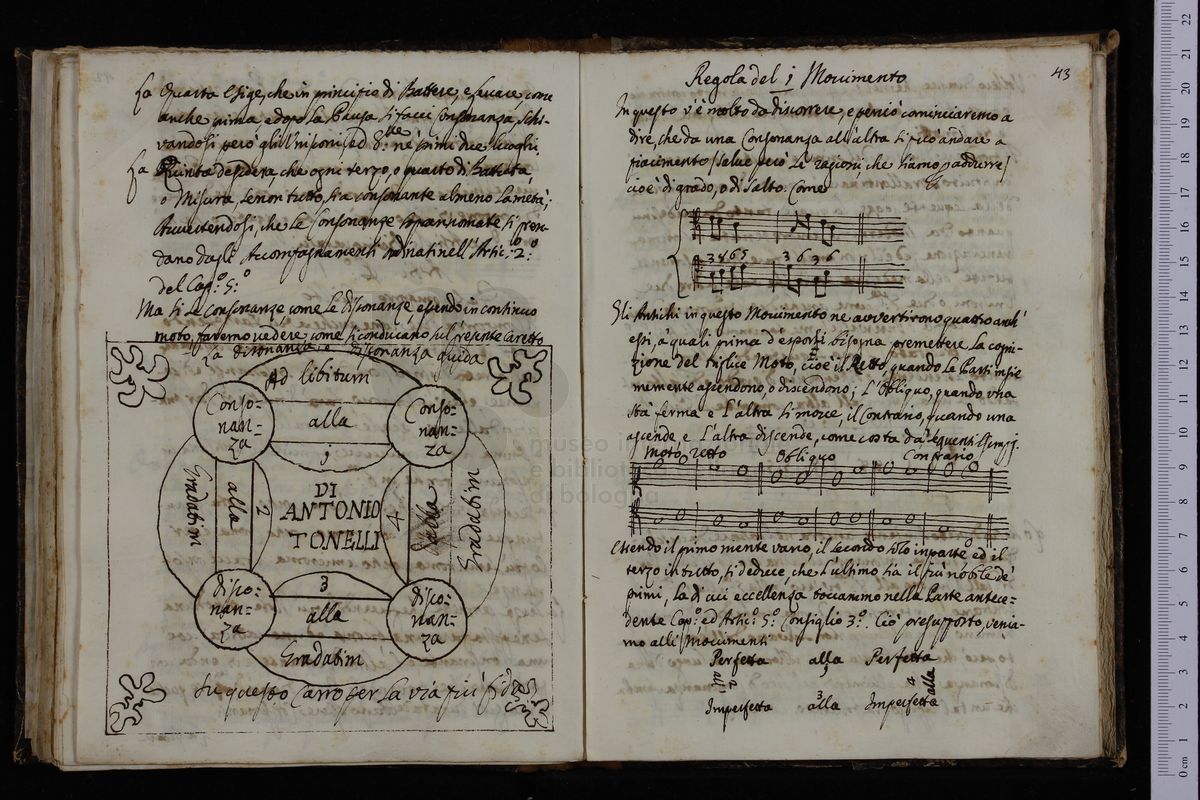 La Quarta esige, che in principio di Battere, e Levare, come
anche prima e dopo la Pausa si facci Consonanza, Schi-
vandosi però gli Unisoni ed 8.ve ne' primi due luoghi.
La Quinta desidera, che ogni terzo, o quarto di Battuta
o Misura, se non tutto, sia consonante almeno la metà;
Avvertendosi, che le Consonanze sopranomate si pren-
dano dagli Accompagnamenti ordinati nell'Artic.º 2.º
del Cap.º 5.º
Ma si le Consonanze come le dissonanze essendo in continuo
moto, faremo vedere come si conducano sul presente Caretto
La dissonanza, e Consonanza guida
Ad libitum
Conso=
nan=
za
alla
1
Conso=
nan=
za
Gradatim
alla
2
DI
ANTONIO
TONELLI
4
alla
Gradatim
disso=
nan=
za
3
alla
Gradatim
disso=
nan=
za
Su questo Carro per la via più fida
Regola del 1 Movimento
43
In questo v'è molto da discorrere, e perciò cominciaremo a
dire, che da una Consonanza all'altra si può andare a
piacimento (salve però le ragioni, che siamo p addurre)
cioè di grado, o di salto. Come
3 8 6 5 3 6 3 6
Gli Antichi in questo Movimento ne avvertirono quattro anch'
essi, a quali prima d'esporsi bisogna premettere la cogni-
zione del triplice Moto, cioè il Retto, quando le Parti insie
memente ascendono, o discendono; L'Obliquo, quando una
stà ferma e l'altra si move, il Contrario, quando una
ascende, e l'altra discende, come costa da' seguenti Essempj.
Moto retto Obliquo Contrario
Essendo il primo mente vario, il secondo solo in parte ed il
terzo in tutto, si deduce, che l'ultimo sia il più nobile de'
primi, la di cui eccellenza toccammo nella Parte antece-
dente Cap.º ed Artic.º 5.º Consiglio 3.º. Ciò presupposto, venia-
mo alli Movimenti
Perfetta alla Perfetta
alla
4
Imperfetta 3 alla Imperfetta
museo
e biblio
di bologna